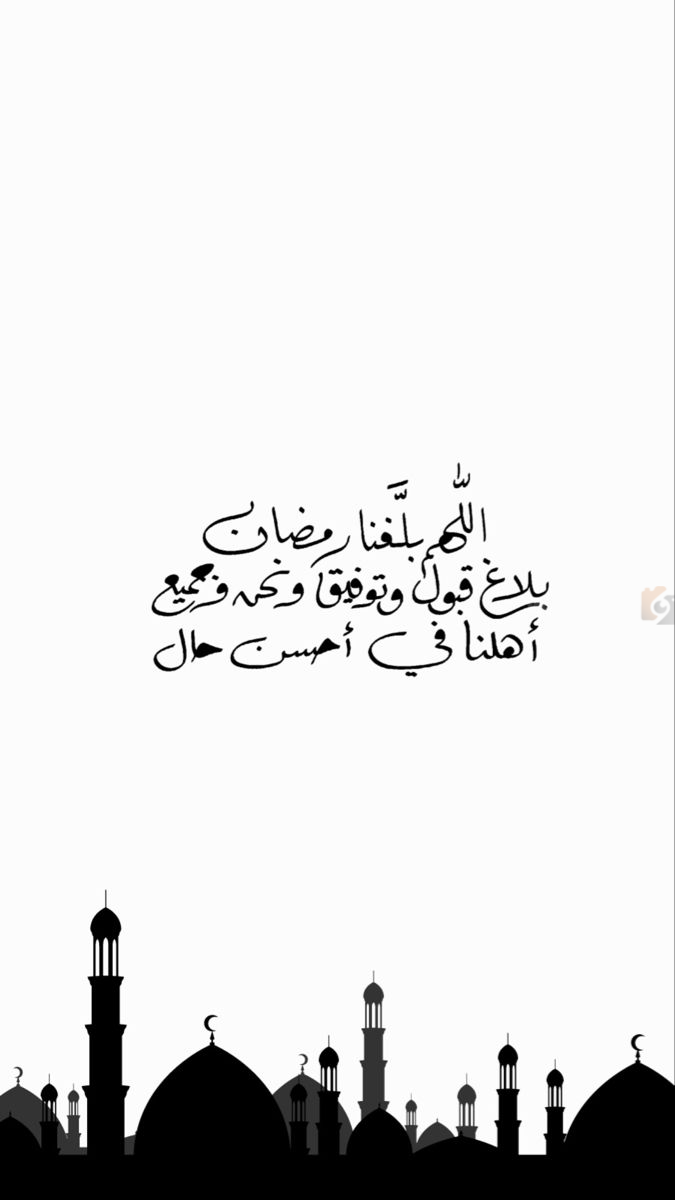 اللّٰهم بلَّغنا رمضان
بلاغ قبول وتوفيق ونحن وجميع
أهلنا في أحسن حال